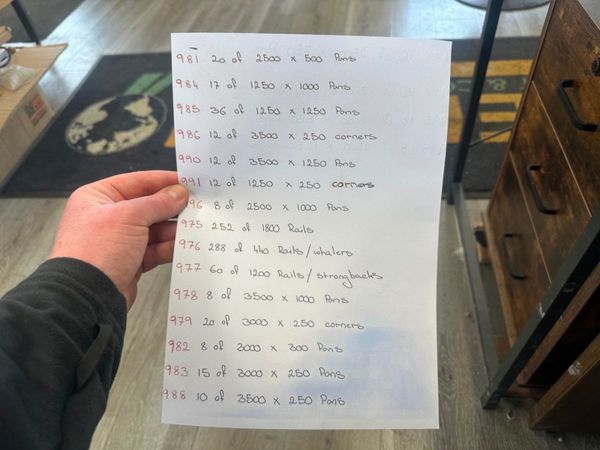 981 20 of 2500 x 500 Pans
984 17 of 1250 x 1000 Pans
985 36 of 1250 x 1250 Pans
986 12 of 3500 x 250 corners
990 12 of 3500 x 1250 Pans
991 12 of 1250 x 250 corners
96 8 of 2500 x 1000 Pans
975 252 of 1800 Rails
976 288 of 440 Rails/whalers
977 60 of 1200 Rails/strongbacks
978 8 of 3500 x 1000 Pans
979 20 of 3000 x 250 corners
982 8 of 3000 x 300 Pans
983 15 of 3000 x 250 Pans
988 10 of 3500 x 250 Pans